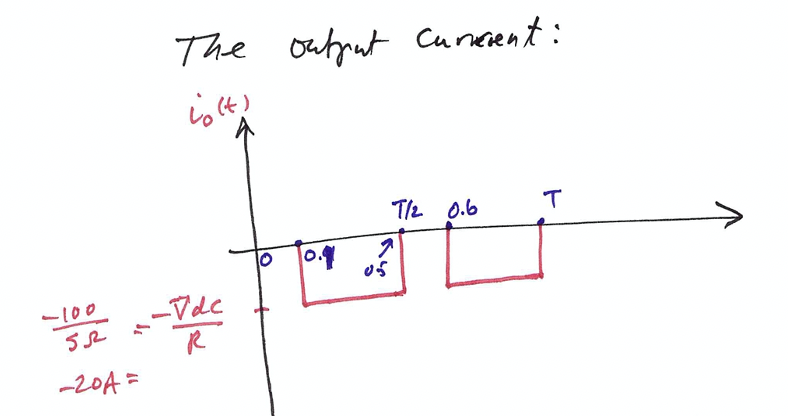 The output current:
i₀(t)
T/2 0.6 T
0 0.1 0.5
-100/5Ω = -Vdc/R
-20A =